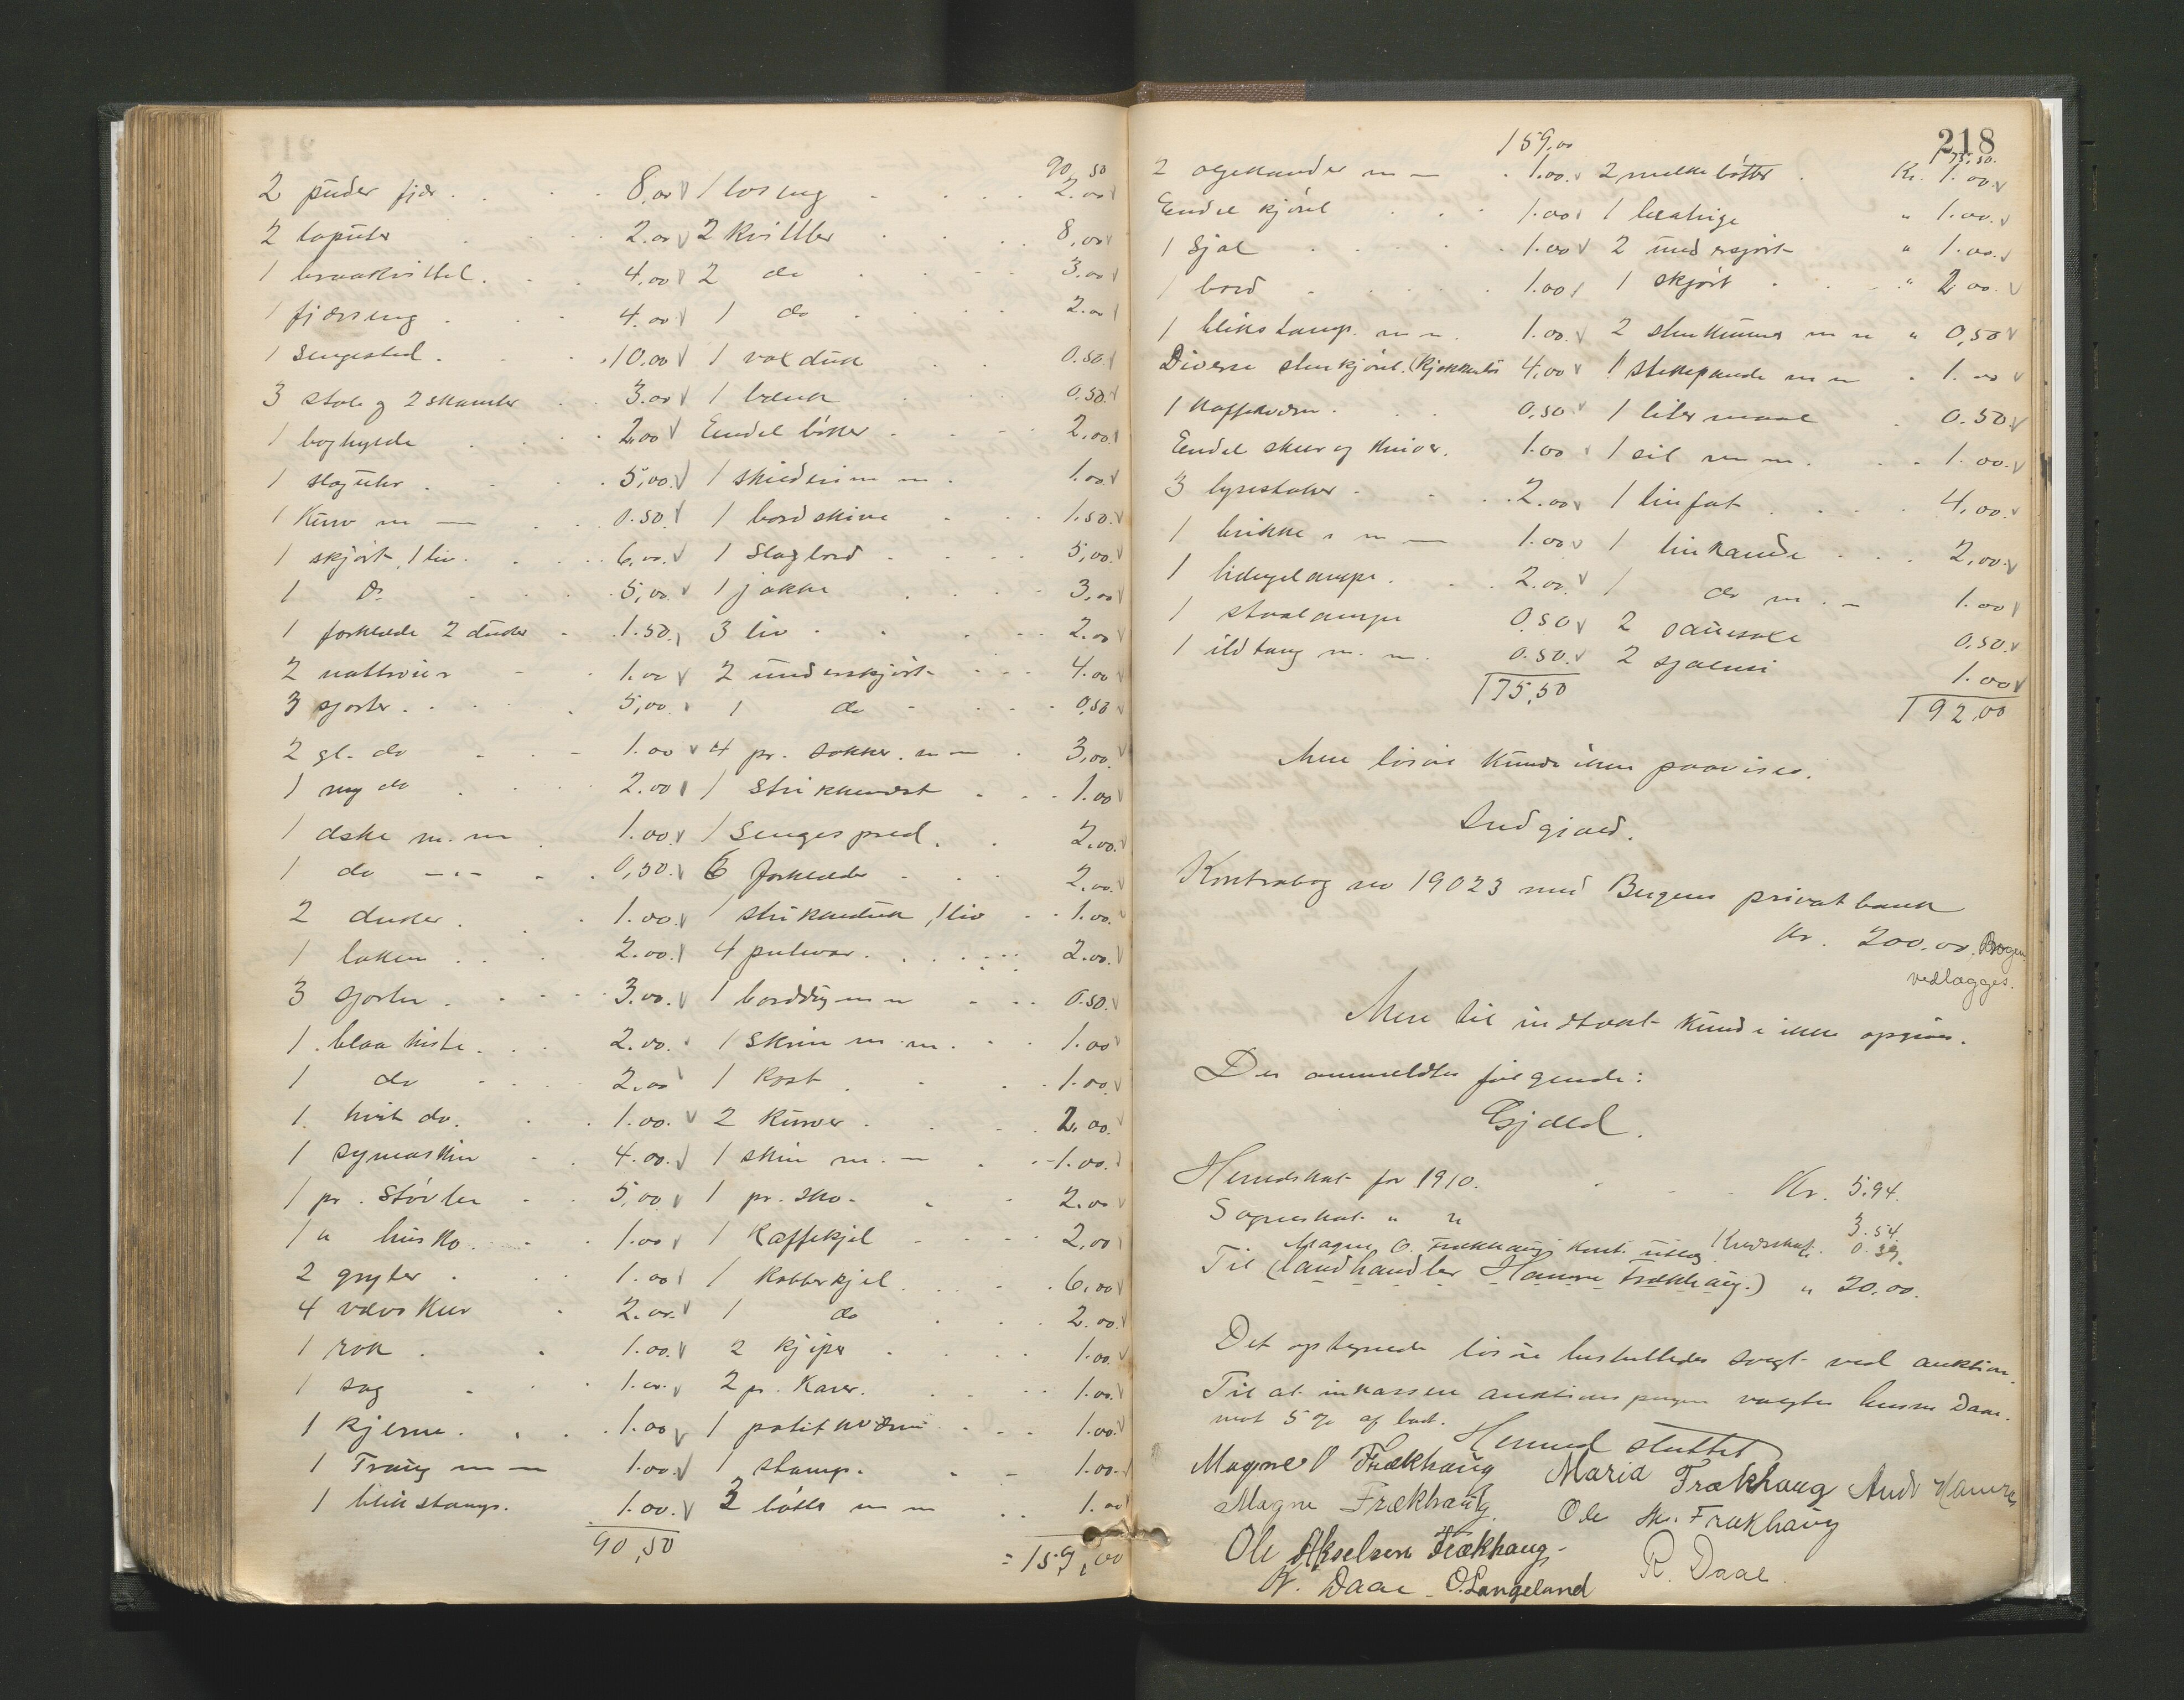 2 puder fjær. 8,00
2 toputer 2.00
4.00
1 fjærseng 4.00
1 Sengested. 10.00
3 stole og 2 skamler 3.00
1 boghylde 2,00
1 slaguhr 5,00
1 Kurv m — 0.50
1 skjørt, 1 liv. 6,00
1 Do 5,00
1 forklæde 2 duker 1.50
2 nattrøier 1.00
3 sjorter 5,00
2 gl. do 1.00
1 ny do 2.00
1 æske m. m 1.00
1 do — 0,50
2 duker. 1.00
1 laken 2.00
3 sjorter. 3.00
1 blaa kiste. 2.00
1 do 2.00
1 hvit do. 1.00
1 symaskin 4.00
1 pr. Støvler 5,00
1 " husko 1.00
2 gryter 1.00
4 vævskeer 2.00
1 rok 1.00
1 sag 1.00
1 kjerne. 1.00
1 Traug m — 1.00
1 blikstamp. 1.00
90,50
90,50
1 loseng 2.00
2 Kvittler 8,00
2 do 3.00
1 do 2.00
1 voxduk 0.50
1 bænk 0.50
Endel bøker 2,00
1 skilderi m m. 1.00
1 bordskive 1.50
1 Slagbord 5,00
1 jakke 3,00
3 liv 2.00
2 underskjørt 4.00
1 do 0,50
4 pr. sokker. m — 3,00
1 1.00
1 Sengespred. 2.00
6 forklæder 2.00
1 strikkeduk, 1 liv 1.00
4 putevar 2.00
1 borddug m m 0.50
1 Skrin m. m. 1.00
1 Kost 1.00
2 Kurver 2.00
1 skrin m. — 1.00
1 pr. sko 2.00
1 Kaffekjel 2,00
1 Kobberkjel 6,00
1 do 2.00
2 kjiper 1.00
2 pr. Karer. 1.00
1 1.00
1 stamp. 1.00
2 bøtter m m 1.00
= 159,00
218
159,00
2 oljekander m — 1.00
Endel kjørel 1.00
1 Sjal 1.00
1 bord 1.00
1 blikstamp. m m. 1.00
Diverse stenkjørel. 4,00
1 Kaffekværn. 0,50
Endel skeer og kniver. 1.00
3 lysestaker 2.00
1 brikke m — 1.00
1 hængelampe. 2.00
1 staalampe 0.50
1 ildtang m. m. 0.50
175,50
175.50.
2 melkebøtter Kr. 1.00
1 " 1.00
2 undersjørt " 1.00
1 skjørt " 2.00
2 stenkrukker m m " 0,50
1 stekepande m m 1.00
1 litermaal 0.50
1 sil m m. 1.00
1 tinfat 4,00
1 tinkande 2,00
1 do m. — 1.00
2 sauesaxe 0.50
2 1.00
192,00
Mere løsøre kunde ikke paavises.
Indgjæld.
Kontrabog no 19023 med Bergens privatbank
Kr. 200.00. Bogen
vedlægges.
Mere til indtækt kunde ikke opgives.
Der anmeldtes følgende:
Gjæld.
Herredskat for 1910. Kr. 5.94.
Sogneskat " " 3.54.
Magne O. Frækhaug Kont. utlæg 0.39.
Til (landhandler Hamre Frækhaug.) " 20.00.
Det optegnede løsøre besluttedes solgt ved auktion.
Til at inkassere auktionspengene valgtes lensm Daae.
mot 5 % af bud.
Hermed sluttet
Magne O Frækhaug Maria Frækhaug Andr Hamre
Magne Frækhaug. Ole Ms. Frækhaug
Ole Akselsen Frækhaug
R. Daae
N. Daae O. Langeland